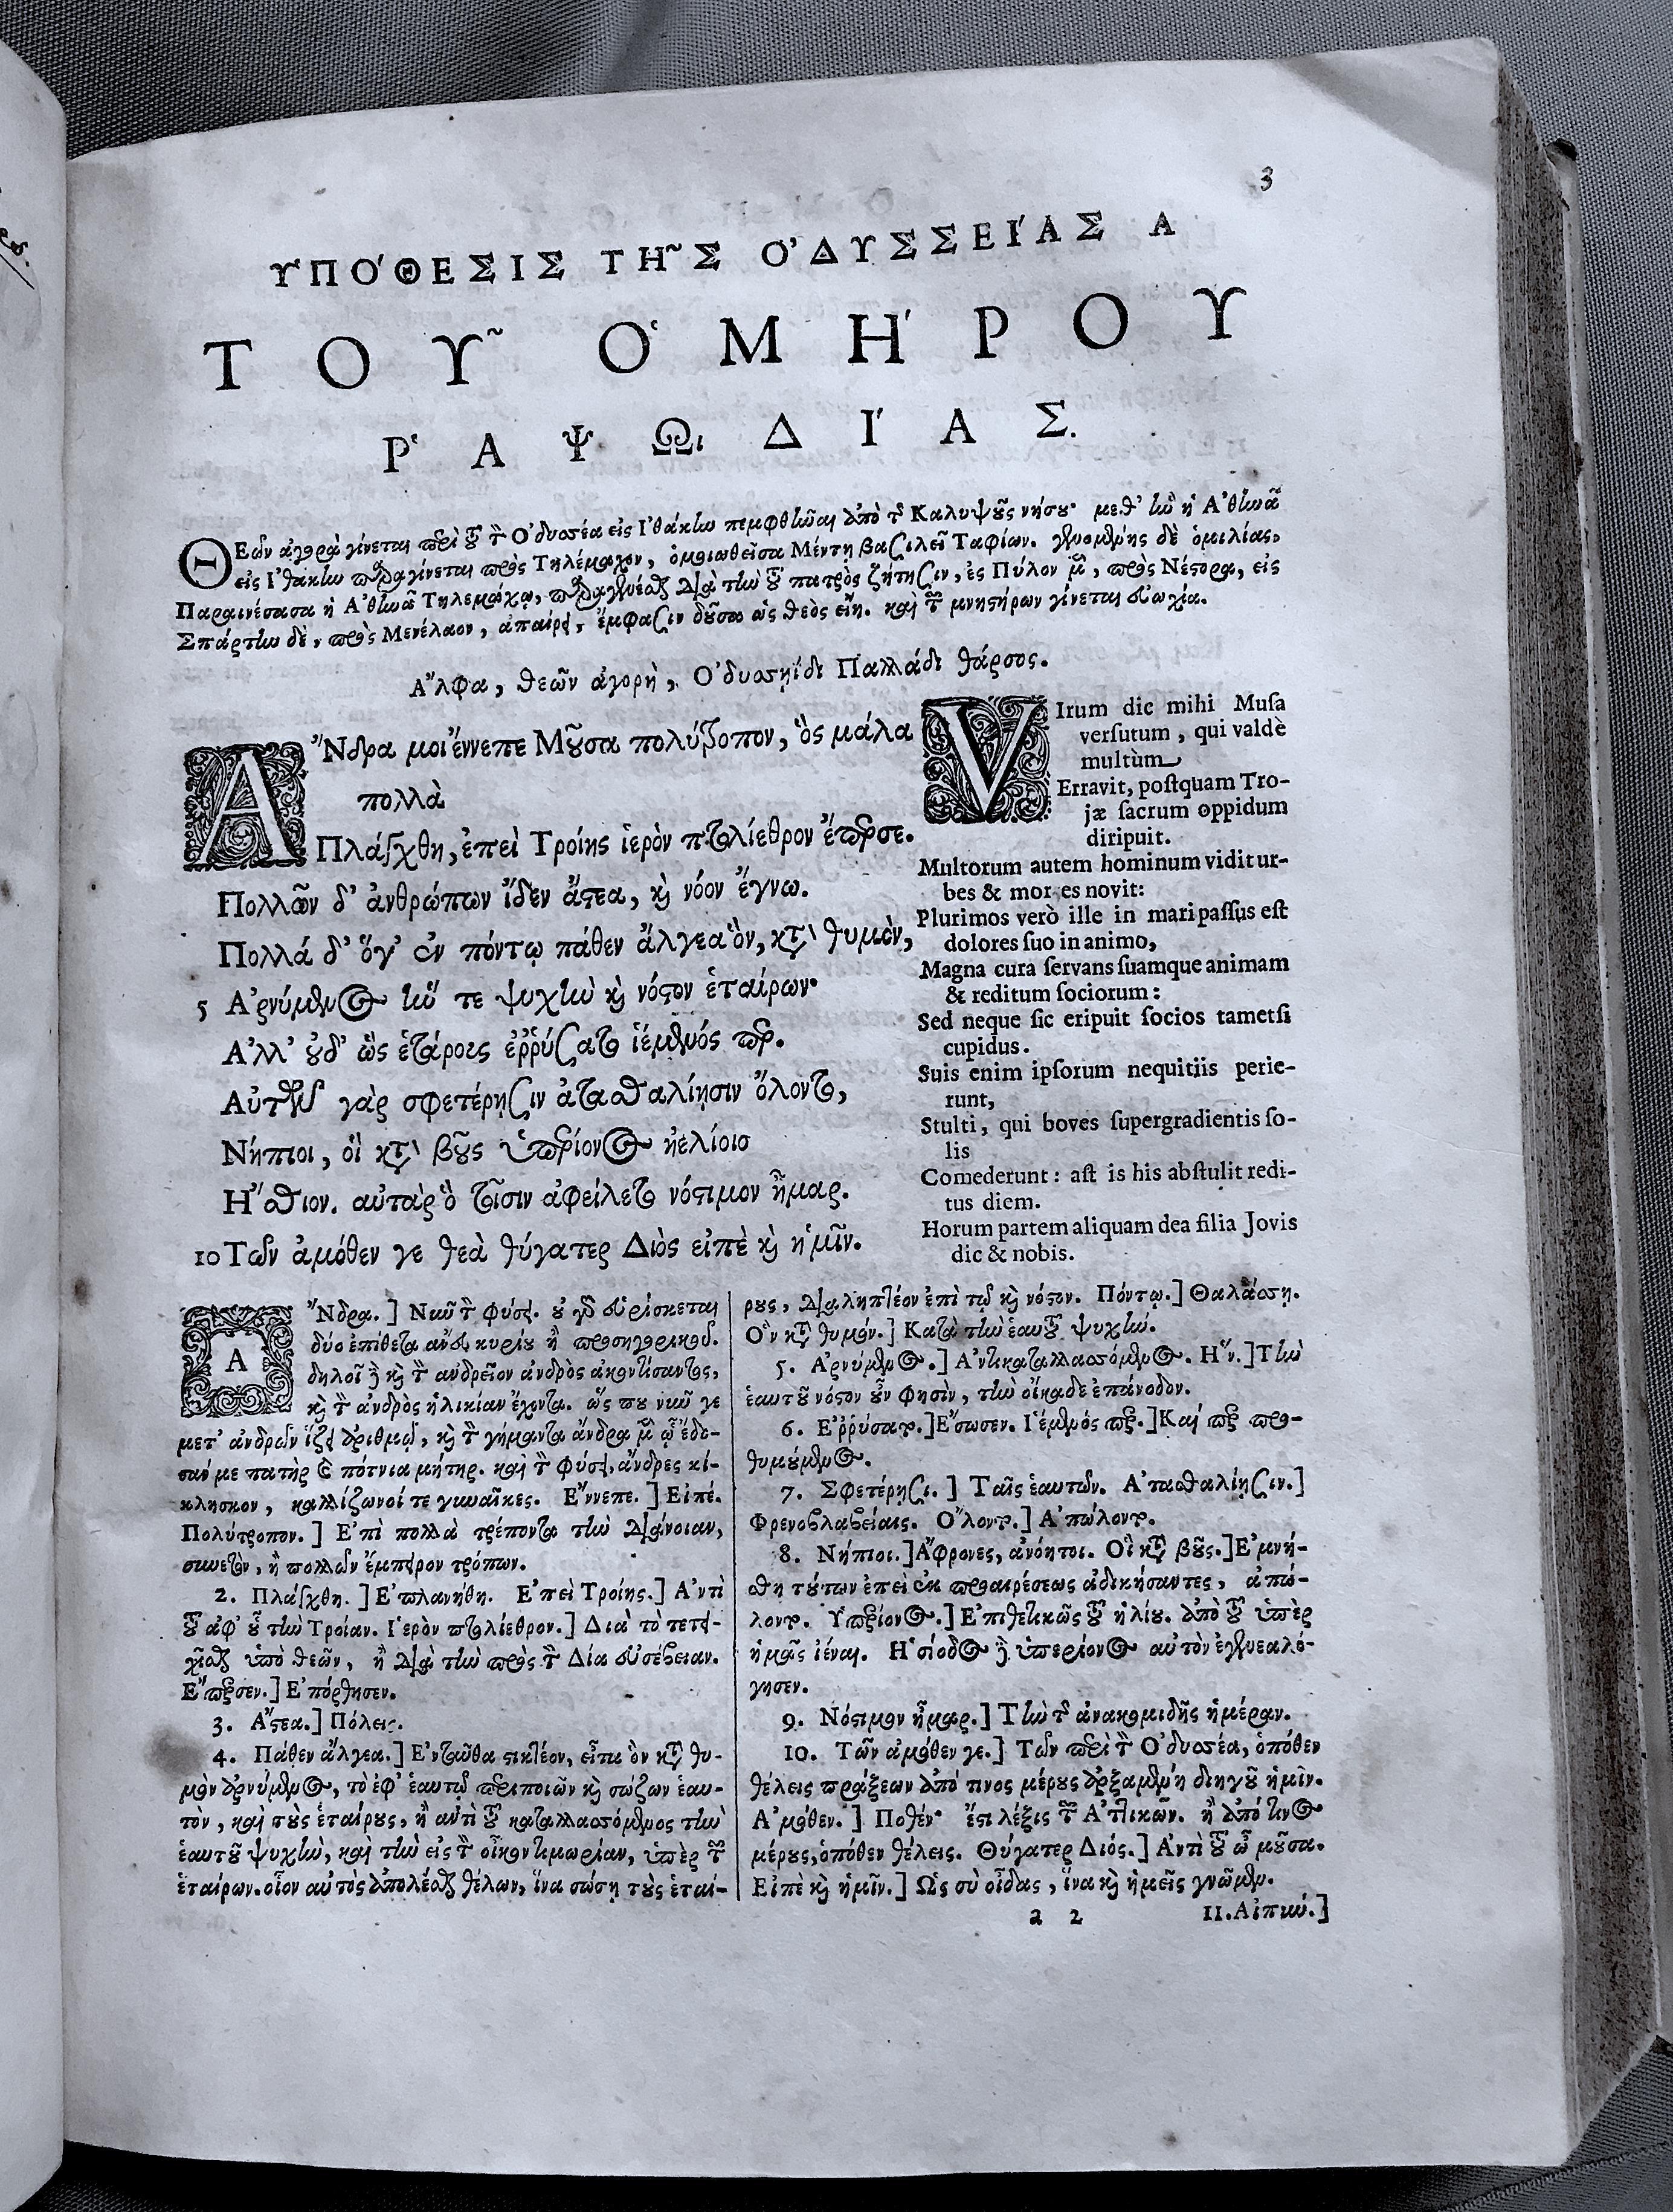 3
ΥΠΌΘΕΣΙΣ ΤΗ͂Σ Ο᾿ΔΥΣΣΕΊΑΣ Α
ΤΟΥ͂ Ο῾ΜΉΡΟΥ
Ρ῾ΑΨΩΔΊΑΣ.
ΘΕῶν ἀγορὰ γίνεται περὶ τοῦ τὸν Ὀδυσσέα εἰς Ἰθάκην πεμφθῆναι ἀπὸ τῆς Καλυψοῦς νήσου· μεθ' ἣν ἡ Ἀθηνᾶ
εἰς Ἰθάκην παραγίνεται πρὸς Τηλέμαχον, ὁμοιωθεῖσα Μέντῃ βασιλεῖ Ταφίων. γενομένης δὲ ὁμιλίας,
Παραινέσασα ἡ Ἀθηνᾶ Τηλεμάχῳ, παραγενέσθαι διὰ τὴν τοῦ πατρὸς ζήτησιν, ἐς Πύλον μὲν, πρὸς Νέστορα, εἰς
Σπάρτην δὲ, πρὸς Μενέλαον, ἀπαίρει, ἔμφασιν δοῦσα ὡς θεὸς εἴη. καὶ τῶν μνηστήρων γίνεται εὐωχία.
Ἄλφα, θεῶν ἀγορὴ, Ὀδυσσηΐδι Παλλάδι θάρσος.
ἌΝδρα μοι ἔννεπε Μοῦσα πολύτροπον, ὃς μάλα
πολλὰ
Πλάγχθη, ἐπεὶ Τροίης ἱερὸν πτολίεθρον ἔπερσε.
Πολλῶν δ' ἀνθρώπων ἴδεν ἄστεα, καὶ νόον ἔγνω.
Πολλά δ' ὅγ' ἐν πόντῳ πάθεν ἄλγεα ὃν, κατὰ θυμὸν,
5 Ἀρνύμενος ἥν τε ψυχὴν καὶ νόστον ἑταίρων·
Ἀλλ' οὐδ' ὣς ἑτάρους ἐῤῥύσατο ἱέμενός περ.
Αὐτῶν γὰρ σφετέρῃσιν ἀτασθαλίῃσιν ὄλοντο,
Νήπιοι, οἳ κατὰ βοῦς ὑπερίονος ἠελίοιο
Ἤσθιον. αὐτὰρ ὃ τοῖσιν ἀφείλετο νόστιμον ἦμαρ.
10 Τῶν ἀμόθεν γε θεὰ θύγατερ Διὸς εἰπὲ καὶ ἡμῖν.
VIrum dic mihi Muſa
verſutum, qui valdè
multùm
Erravit, poſtquam Tro-
jæ ſacrum oppidum
diripuit.
Multorum autem hominum vidit ur-
bes & mores novit:
Plurimos verò ille in mari paſſus eſt
dolores ſuo in animo,
Magna cura ſervans ſuamque animam
& reditum ſociorum:
Sed neque ſic eripuit ſocios tametſi
cupidus.
Suis enim ipſorum nequitiis perie-
runt,
Stulti, qui boves ſupergradientis ſo-
lis
Comederunt: aſt is his abſtulit redi-
tus diem.
Horum partem aliquam dea filia Jovis
dic & nobis.
ἌΝδρα.] Νῦν τὸν φύσει. οὐ γὰρ εὑρίσκεται
δύο ἐπίθετα ἄνευ κυρίου ἢ προσηγορικοῦ.
δηλοῖ δὲ καὶ τὸν ἀνδρεῖον ἀνδρὸς ἀκοντίσαντος,
καὶ τὸν ἀνδρὸς ἡλικίαν ἔχοντα. ὥς που νῦν γε
μετ' ἀνδρῶν ἵζει ἀριθμῷ, καὶ τὸν γήμαντα ἄνδρα μὲν ᾧ ἔδο-
σάν με πατὴρ καὶ πότνια μήτηρ. καὶ τὸν φύσει, ἄνδρες κί-
κλησκον, καλλίζωνοί τε γυναῖκες. Ἔννεπε.] Εἰπέ.
Πολύτροπον.] Ἐπὶ πολλὰ τρέποντα τὴν διάνοιαν,
συνετὸν, ἢ πολλῶν ἔμπειρον τρόπων.
2. Πλάγχθη.] Ἐπλανήθη. Ἐπεὶ Τροίης.] Ἀντὶ
τοῦ ἀφ' οὗ τὴν Τροίαν. Ἱερὸν πτολίεθρον.] Διὰ τὸ τετει-
χίσθαι ὑπὸ θεῶν, ἢ διὰ τὴν πρὸς τὸν Δία εὐσέβειαν.
Ἔπερσεν.] Ἐπόρθησεν.
3. Ἄστεα.] Πόλεις.
4. Πάθεν ἄλγεα.] Ἐνταῦθα στικτέον, εἶτα ὃν κατὰ θυ-
μὸν ἀρνύμενος, τὸ ἐφ' ἑαυτῷ περιποιῶν καὶ σώζων ἑαυ-
τὸν, καὶ τοὺς ἑταίρους, ἢ ἀντὶ τοῦ καταλλασσόμενος τὴν
ἑαυτοῦ ψυχὴν, καὶ τὴν εἰς τὸν οἶκον τιμωρίαν, ὑπὲρ τῶν
ἑταίρων. οἷον αὐτὸς ἀπολέσθαι θέλων, ἵνα σώσῃ τοὺς ἑταί-
ρους, διαληπτέον ἐπὶ τῷ καὶ νόστον. Πόντῳ.] Θαλάσσῃ.
Ὃν κατὰ θυμόν.] Κατὰ τὴν ἑαυτοῦ ψυχὴν.
5. Ἀρνύμενος.] Ἀντικαταλλασσόμενος. Ἥν.] Τὴν
ἑαυτοῦ νόστον οὖν φησὶν, τὴν οἴκαδε ἐπάνοδον.
6. Ἐῤῥύσατο.] Ἔσωσεν. Ἱέμενός περ.] Καί περ προ-
θυμούμενος.
7. Σφετέρῃσι.] Ταῖς ἑαυτῶν. Ἀτασθαλίῃσιν.]
Φρενοβλαβείαις. Ὄλοντο.] Ἀπώλοντο.
8. Νήπιοι.] Ἄφρονες, ἀνόητοι. Οἳ κατὰ βοῦς.] Ἐμνή-
σθη τούτων ἐπεὶ ἐκ προαιρέσεως ἀδικήσαντες, ἀπώ-
λοντο. Ὑπερίονος.] Ἐπιθετικῶς τοῦ ἡλίου. ἀπὸ τοῦ ὑπὲρ
ἡμᾶς ἰέναι. Ἡσίοδος δὲ ὑπερίονος αὐτὸν ἐγενεαλό-
γησεν.
9. Νόστιμον ἦμαρ.] Τὴν τῆς ἀνακομιδῆς ἡμέραν.
10. Τῶν ἀμόθεν γε.] Τῶν περὶ τὸν Ὀδυσσέα, ὁπόθεν
θέλεις πράξεων ἀπό τινος μέρους ἀρξαμένη διηγοῦ ἡμῖν.
Ἀμόθεν.] Ποθέν· ἔστι λέξις τῶν Ἀττικῶν. ἢ ἀπό τινος
μέρους, ὁπόθεν θέλεις. Θύγατερ Διός.] Ἀντὶ τοῦ ὦ μοῦσα.
Εἰπὲ καὶ ἡμῖν.] Ὡς σὺ οἶδας, ἵνα καὶ ἡμεῖς γνῶμεν.
a 2 11. Αἰπὺν.]